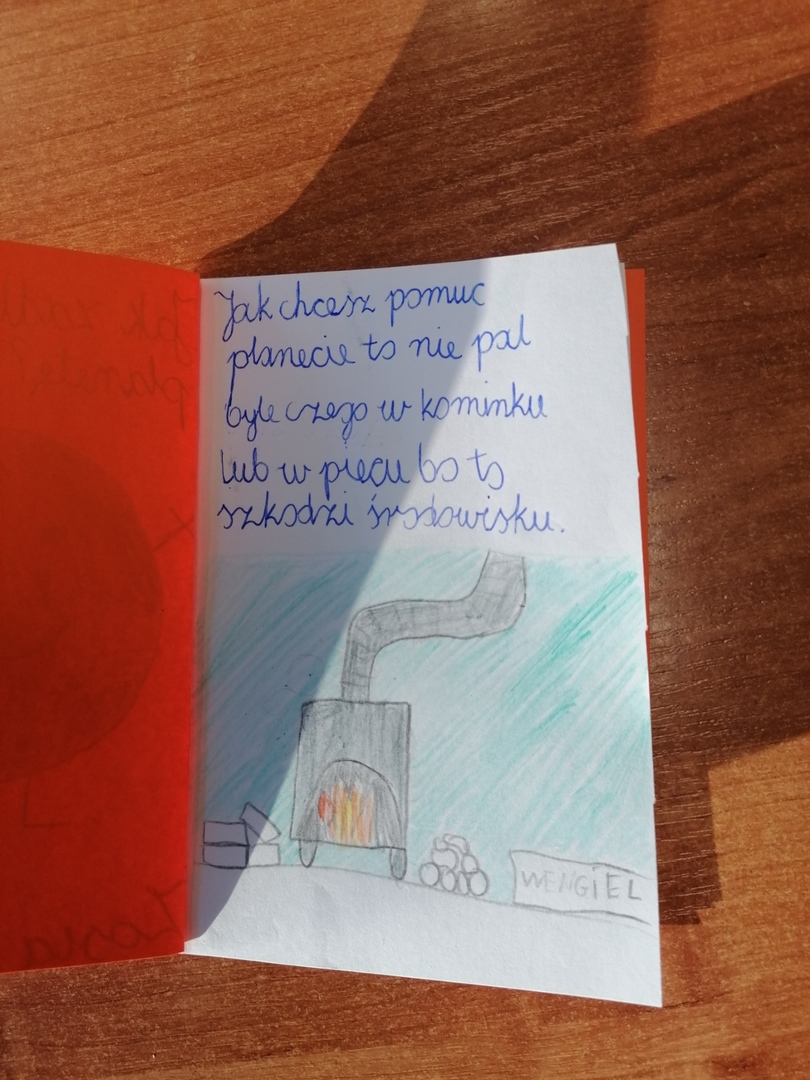 Jak chcesz pomuc
planecie to nie pal
byle czego w kominku
lub w piecu bo to
szkodzi środowisku.
WENGIEL
Jak
planetę?
Zosia